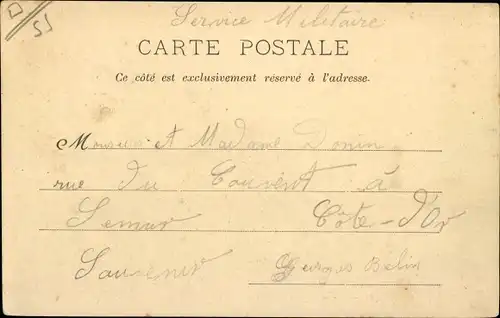 Service Militaire
CARTE POSTALE
Ce côté est exclusivement réservé à l'adresse.
Monsieur et Madame Donin
rue du Couvent à
Semur Côte-D'Or
Souvenir Georges Belin